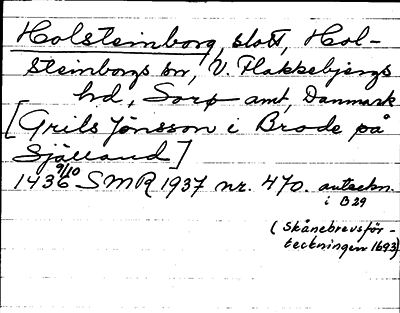 Holsteinborg, slott, Hol-
steinborgs sn, V. Flakkebjergs
hd, Sorø amt, Danmark
[Grils Jönsson i Brode på
Själland]
1436 9/10 SMR 1937 nr. 470. anteckn.
i B29
(Skånebrevsför-
teckningen 1693)